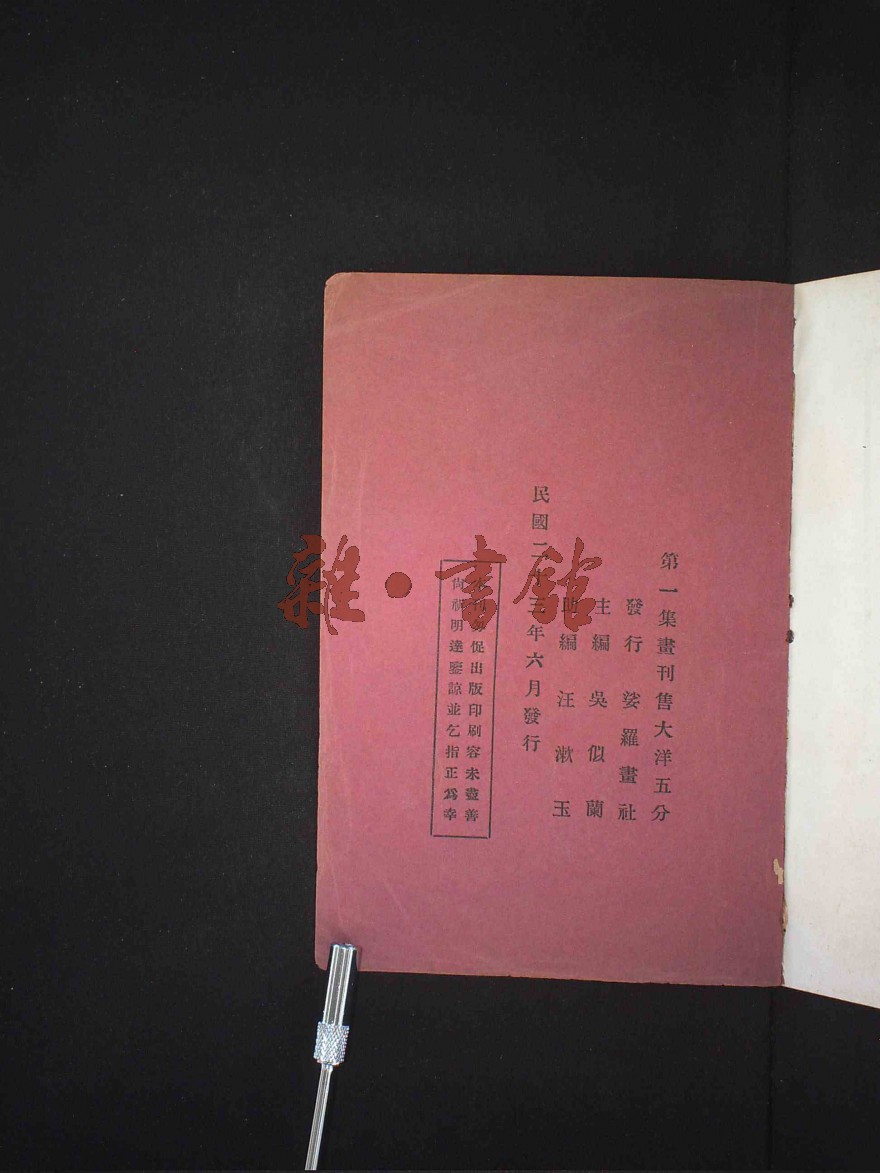 第一集畫刊售大洋五分
發行 娑羅畫社
主編 吳似蘭
助編 汪漱玉
民國二十三年六月發行
刊匆促出版印刷容未盡善
尙祈明達鑒諒並乞指正爲幸
雜·書館